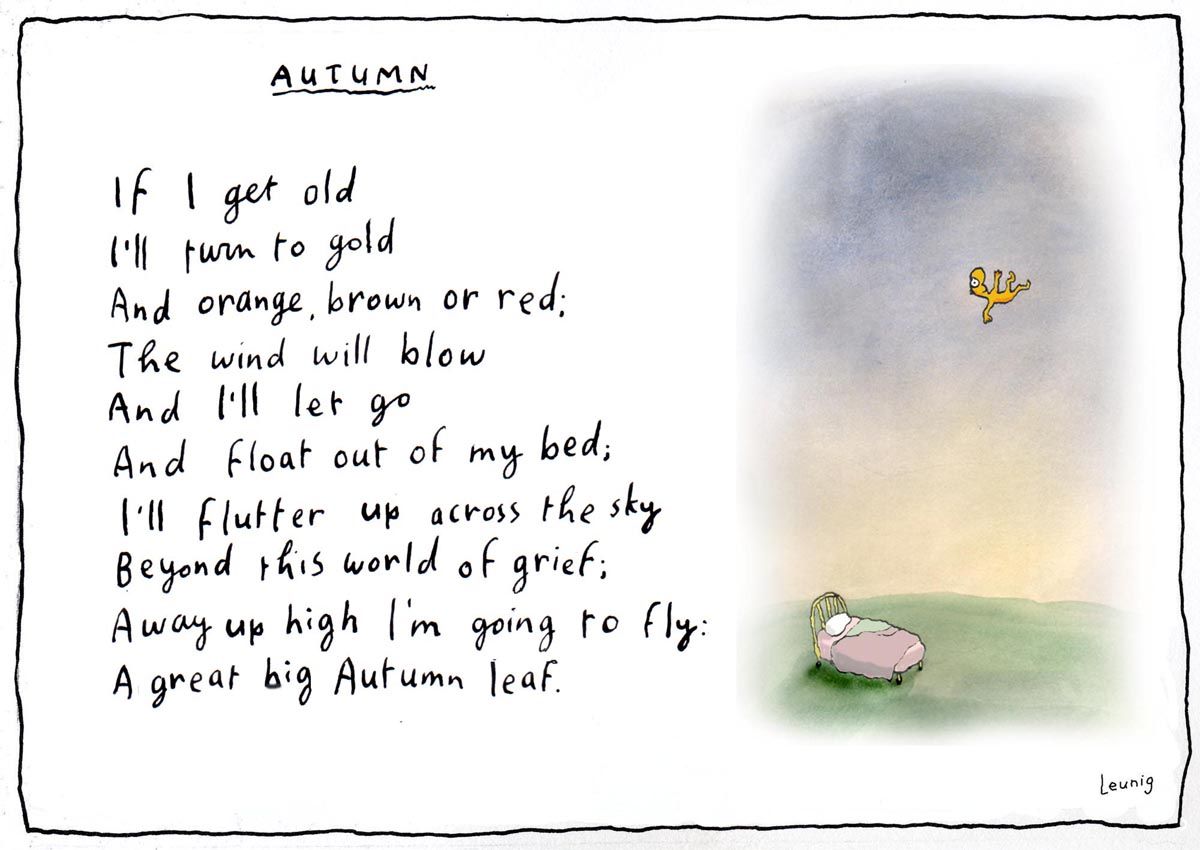 AUTUMN
If I get old
I'll turn to gold
And orange, brown or red;
The wind will blow
And I'll let go
And float out of my bed;
I'll flutter up across the sky
Beyond this world of grief;
Away up high I'm going to fly:
A great big Autumn leaf.
Leunig